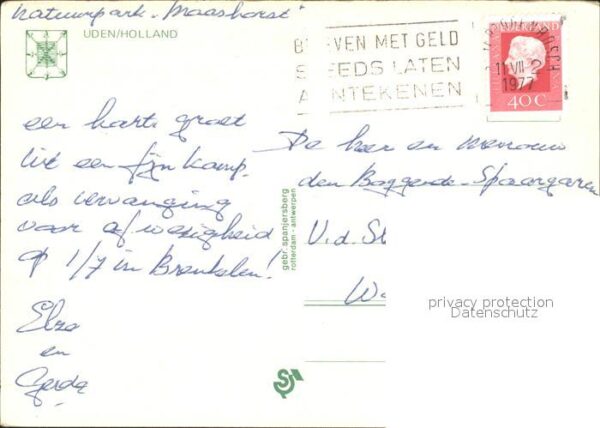 Natuurpark "Maashorst"
UDEN/HOLLAND
BRIEVEN MET GELD
STEEDS LATEN
AANTEKENEN
'S-HERTOGENBOSCH
11 VII 2
1977
NEDERLAND
40 C
een harte groet
uit een fijn kamp.
als vervanging
voor afwezigheid
op 1/7 in Breukelen!
Elza
en
Gerda
gebr. spanjersberg
rotterdam - antwerpen
De heer en mevrouw
den Baggende-Spaargaren
V.d. St
Wa
privacy protection
Datenschutz